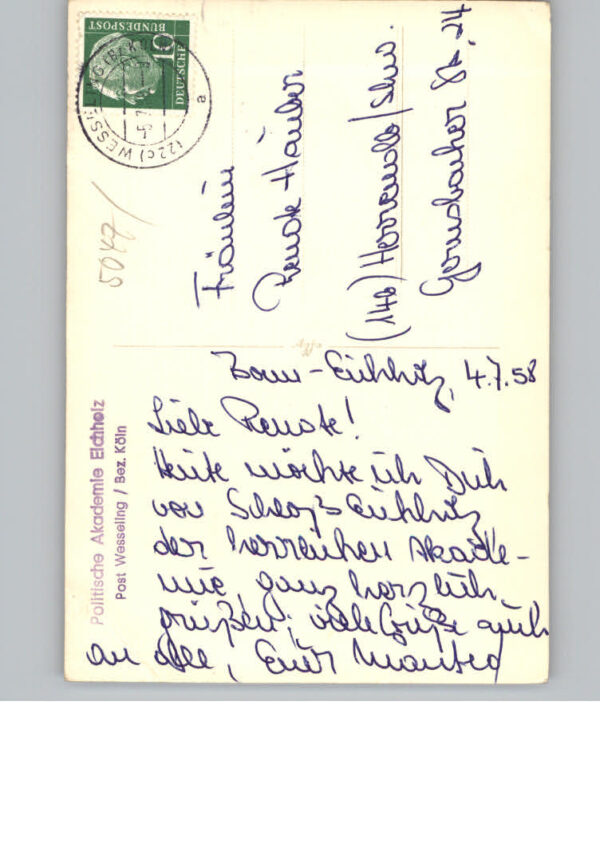 DEUTSCHE
BUNDESPOST
10
(22c) WESSELING (BZ KÖLN)
a
5047/
Fräulein
Renate Häuber
(14a) Herrenalb/Schw.
Gernsbacher Str. 24
Bonn-Eichholz, 4.7.58
Liebe Renate!
Heute möchte ich Dich
von Schloß Eichholz,
der herrlichen Akade-
mie, ganz herzlich
grüßen; viele Grüße auch
an alle, Euer Manfred
Politische Akademie Eichholz
Post Wesseling / Bez. Köln